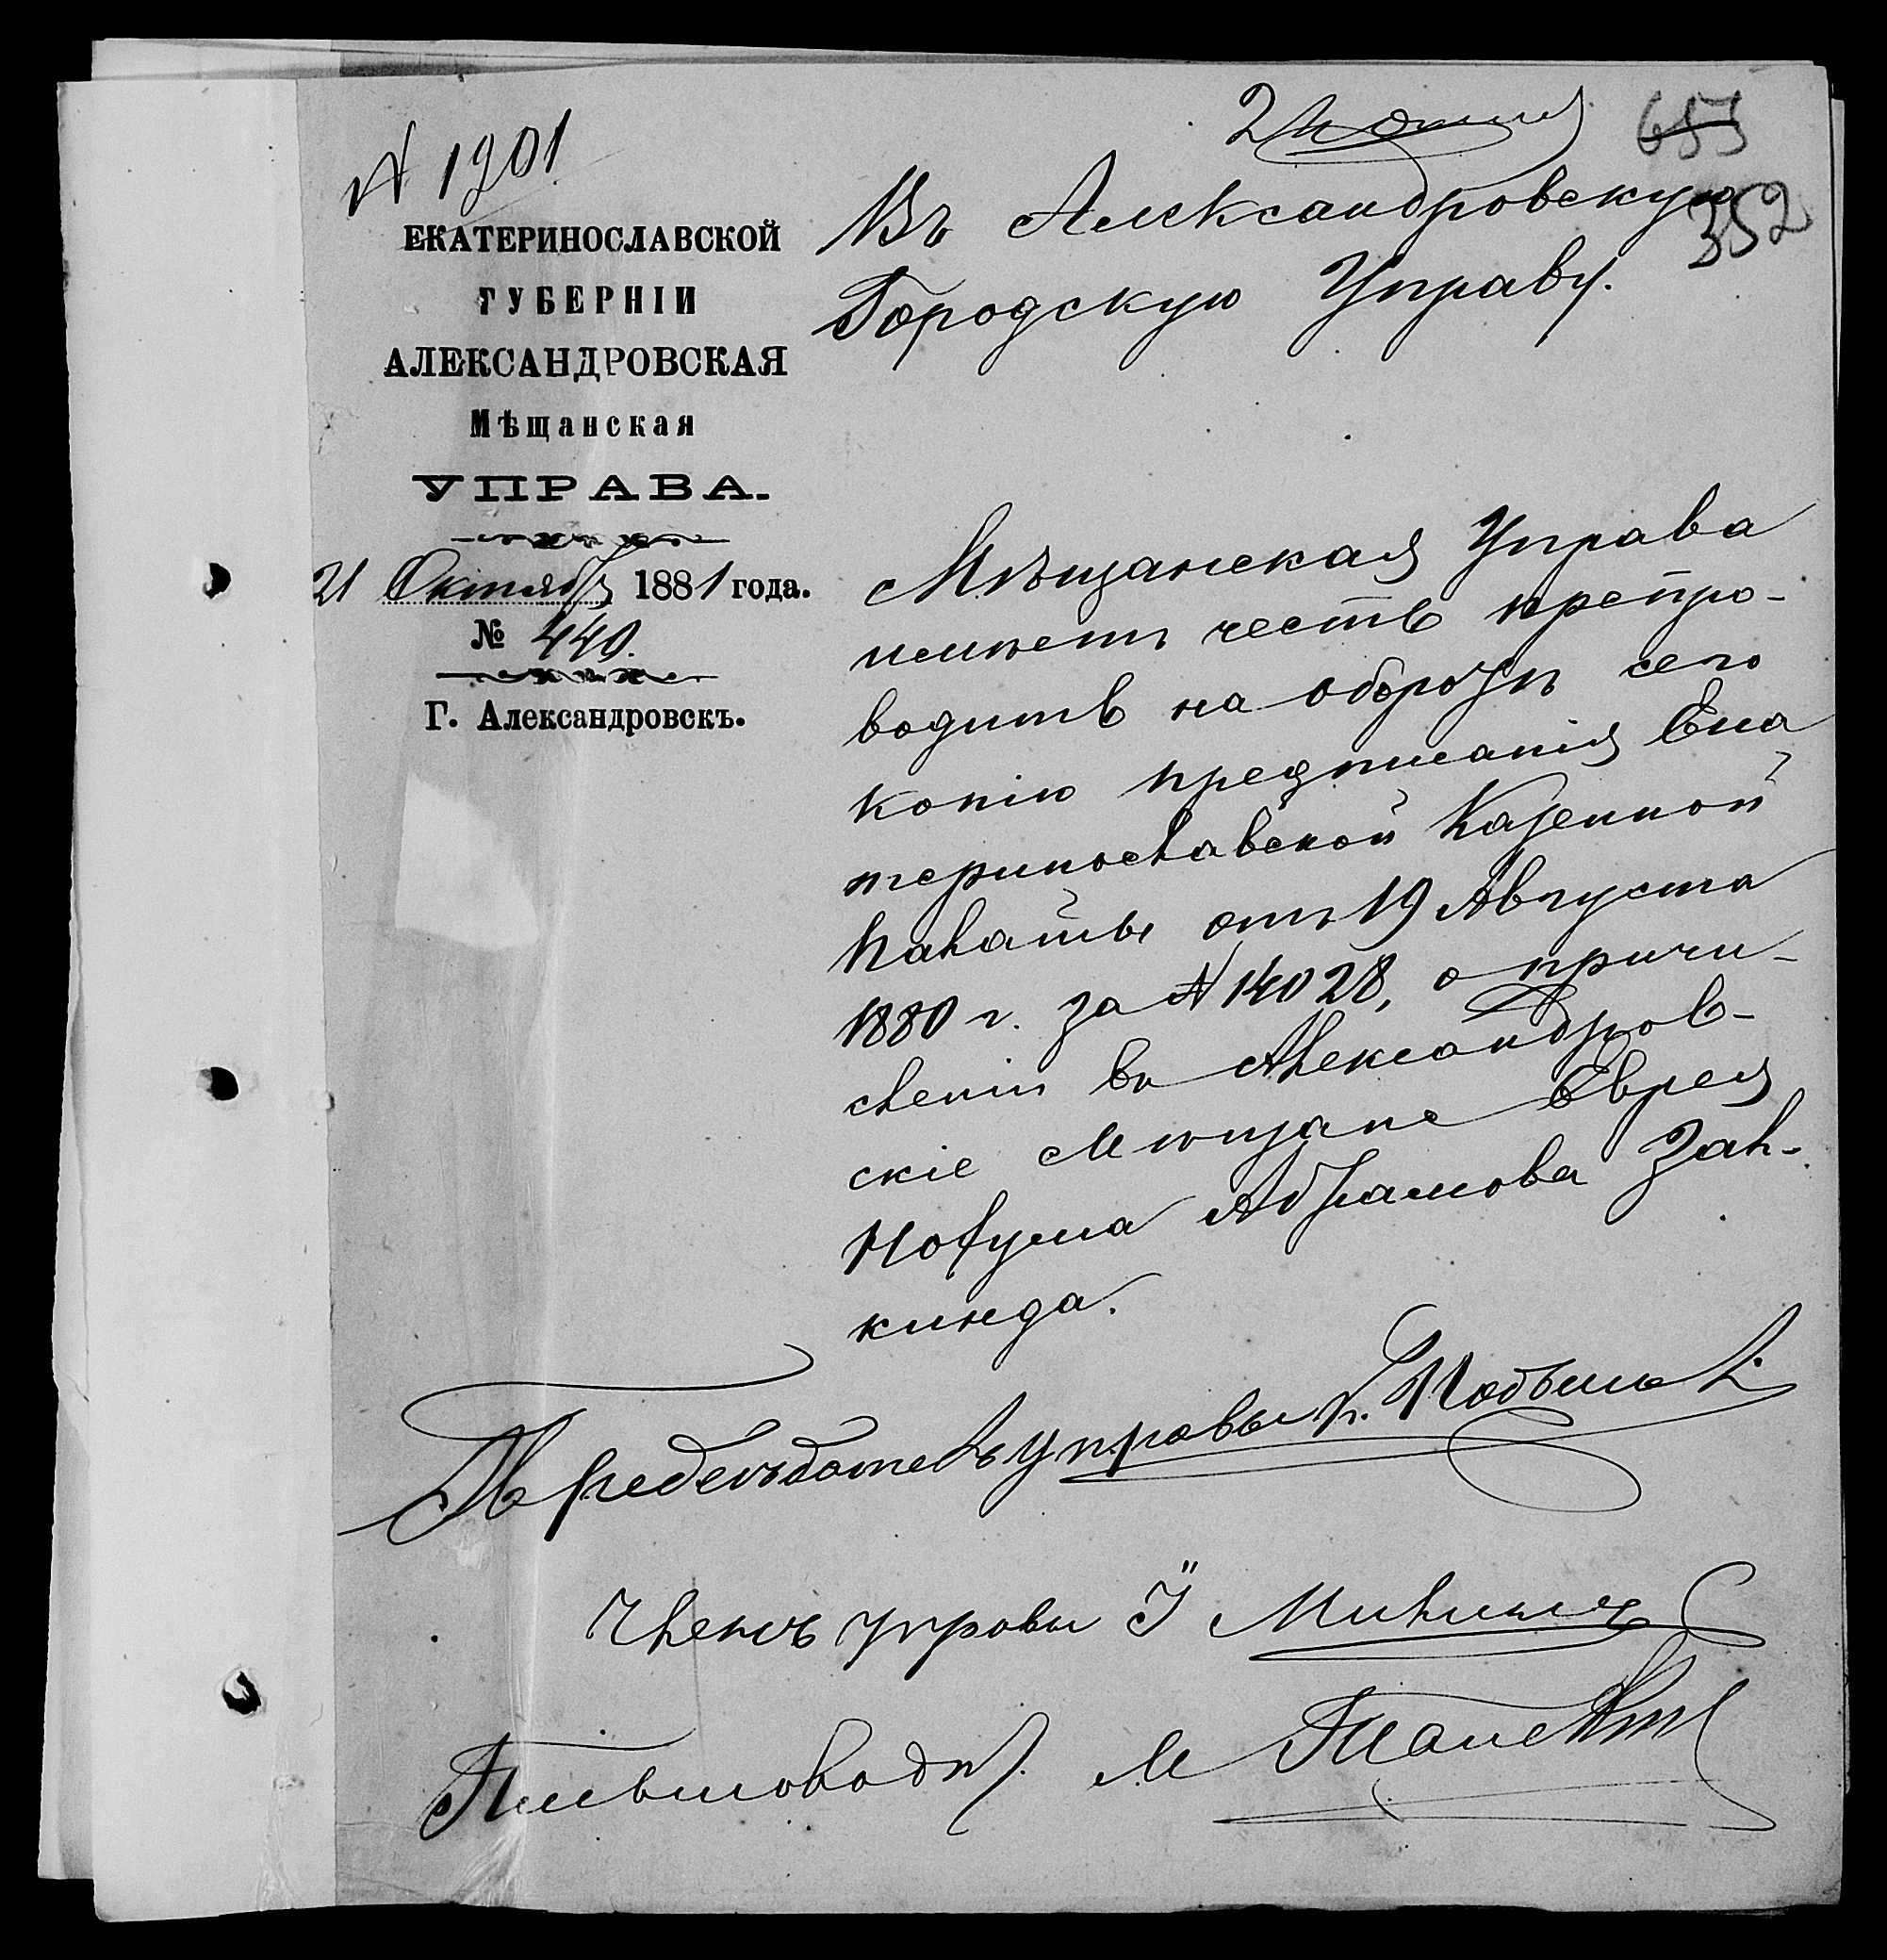 № 1201
655
352
ЕКАТЕРИНОСЛАВСКОЙ
ГУБЕРНІИ
АЛЕКСАНДРОВСКАЯ
Мѣщанская
УПРАВА.
21 Октября 1881 года.
№ 440.
Г. Александровскъ.
Въ Александровскую
Городскую Управу.
Мѣщанская Управа
имѣетъ честь препро-
водить на оборотѣ сего
копію предписанія Ека
теринославской Казенной
Палаты отъ 19 Августа
1880 г. за № 14028, о причи-
сленіи въ Александров-
скіе Мѣщане Еврея
Нохума Абрамова Зал-
кинда.
Предсѣдатель управы
Членъ управы І
Письмовод. М